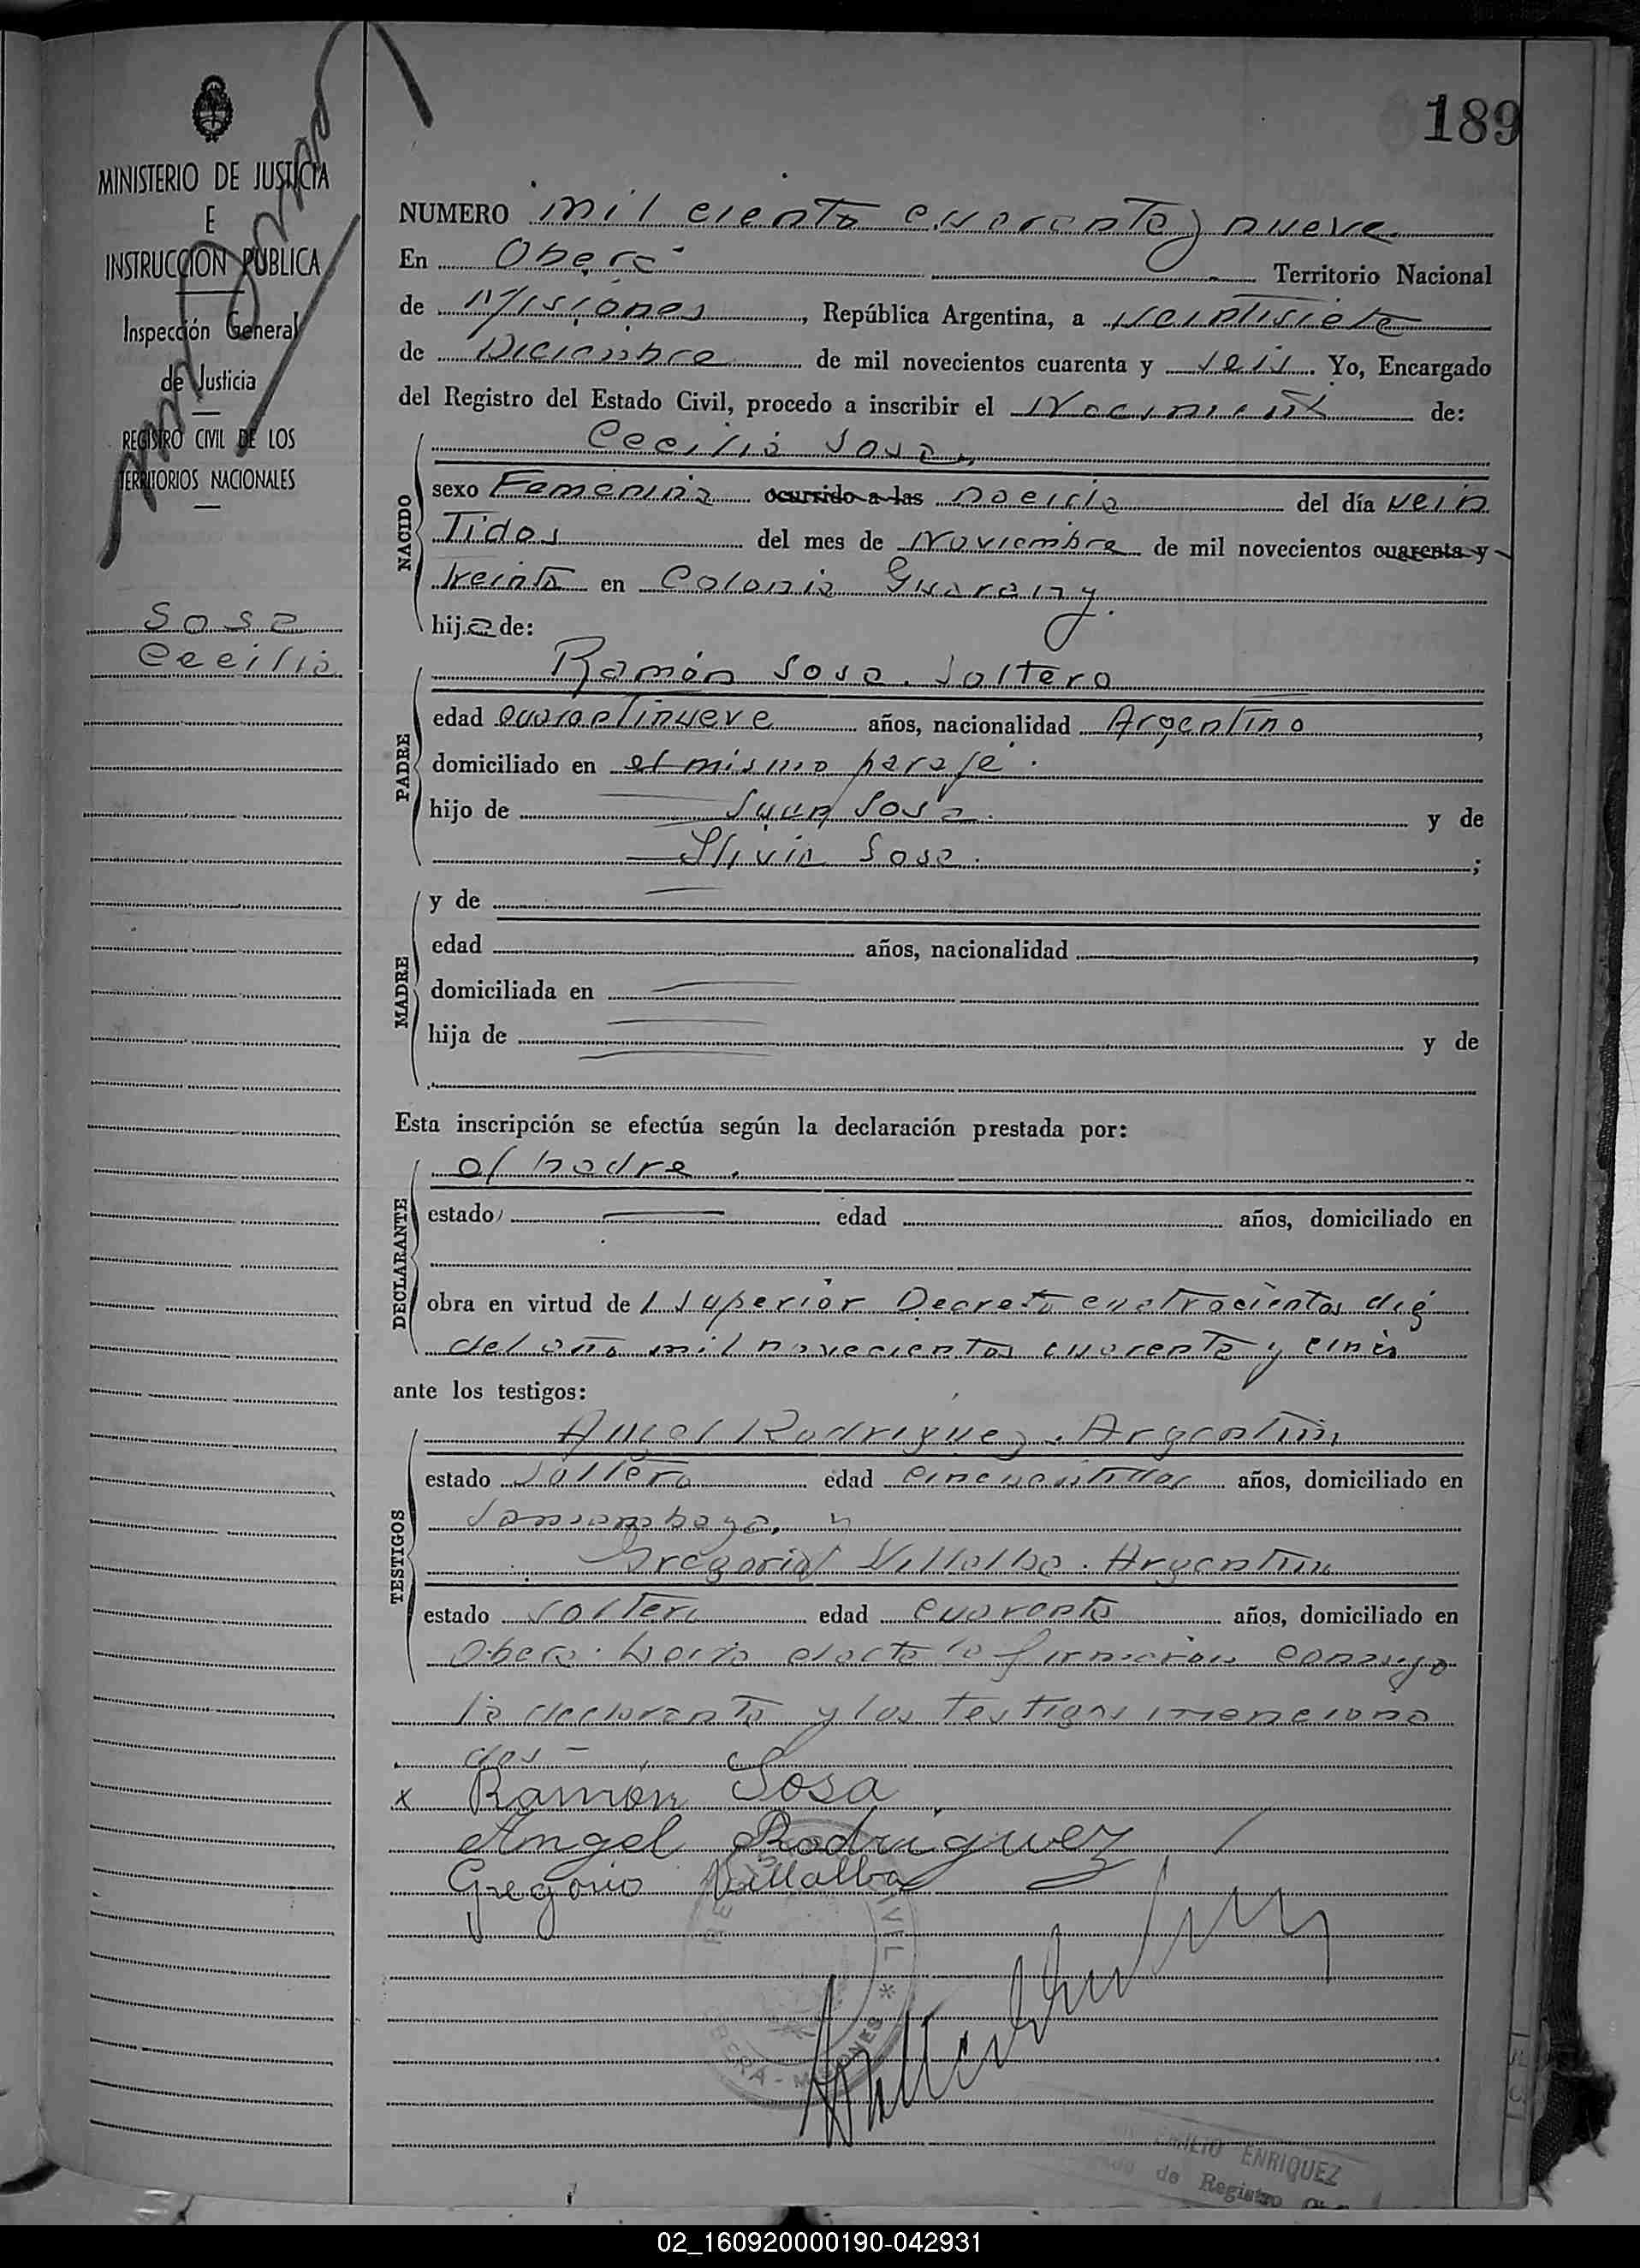 189
MINISTERIO DE JUSTICIA
E
INSTRUCCION PUBLICA
Inspección General
de Justicia
REGISTRO CIVIL DE LOS
TERRITORIOS NACIONALES
Sosa
Cecilia
NUMERO mil ciento cuarenta y nueve
En Oberá Territorio Nacional
de Misiones, República Argentina, a veintisiete
de Diciembre de mil novecientos cuarenta y seis. Yo, Encargado
del Registro del Estado Civil, procedo a inscribir el Nacimiento de:
NACIDO
Cecilia Sosa
sexo Femenina ocurrido a las nacida del día vein
tidos del mes de Noviembre de mil novecientos cuarenta y
treinta en Colonia Guarany.
hija de:
PADRE
Ramón Sosa. Soltero
edad cuarentinueve años, nacionalidad Argentino,
domiciliado en el mismo paraje.
hijo de Juan Sosa. y de
Silvia Sosa. ;
MADRE
y de
edad años, nacionalidad ,
domiciliada en
hija de y de
Esta inscripción se efectúa según la declaración prestada por:
DECLARANTE
el padre.
estado edad años, domiciliado en
obra en virtud de l Superior Decreto cuatrocientos diez
del año mil novecientos cuarenta y cinco
ante los testigos:
TESTIGOS
Angel Rodriguez. Argentino
estado soltero edad cincuentidos años, domiciliado en
y
Gregorio Villalba. Argentino
estado soltero edad cuarenta años, domiciliado en
Oberá. Leida el acta la firmaron conmigo
la declarante y los testigos menciona
dos
x Ramón Sosa
Angel Rodriguez
Gregorio Villalba
OBERA - MISIONES *
EMILIO ENRIQUEZ
de Registro
02_160920000190-042931